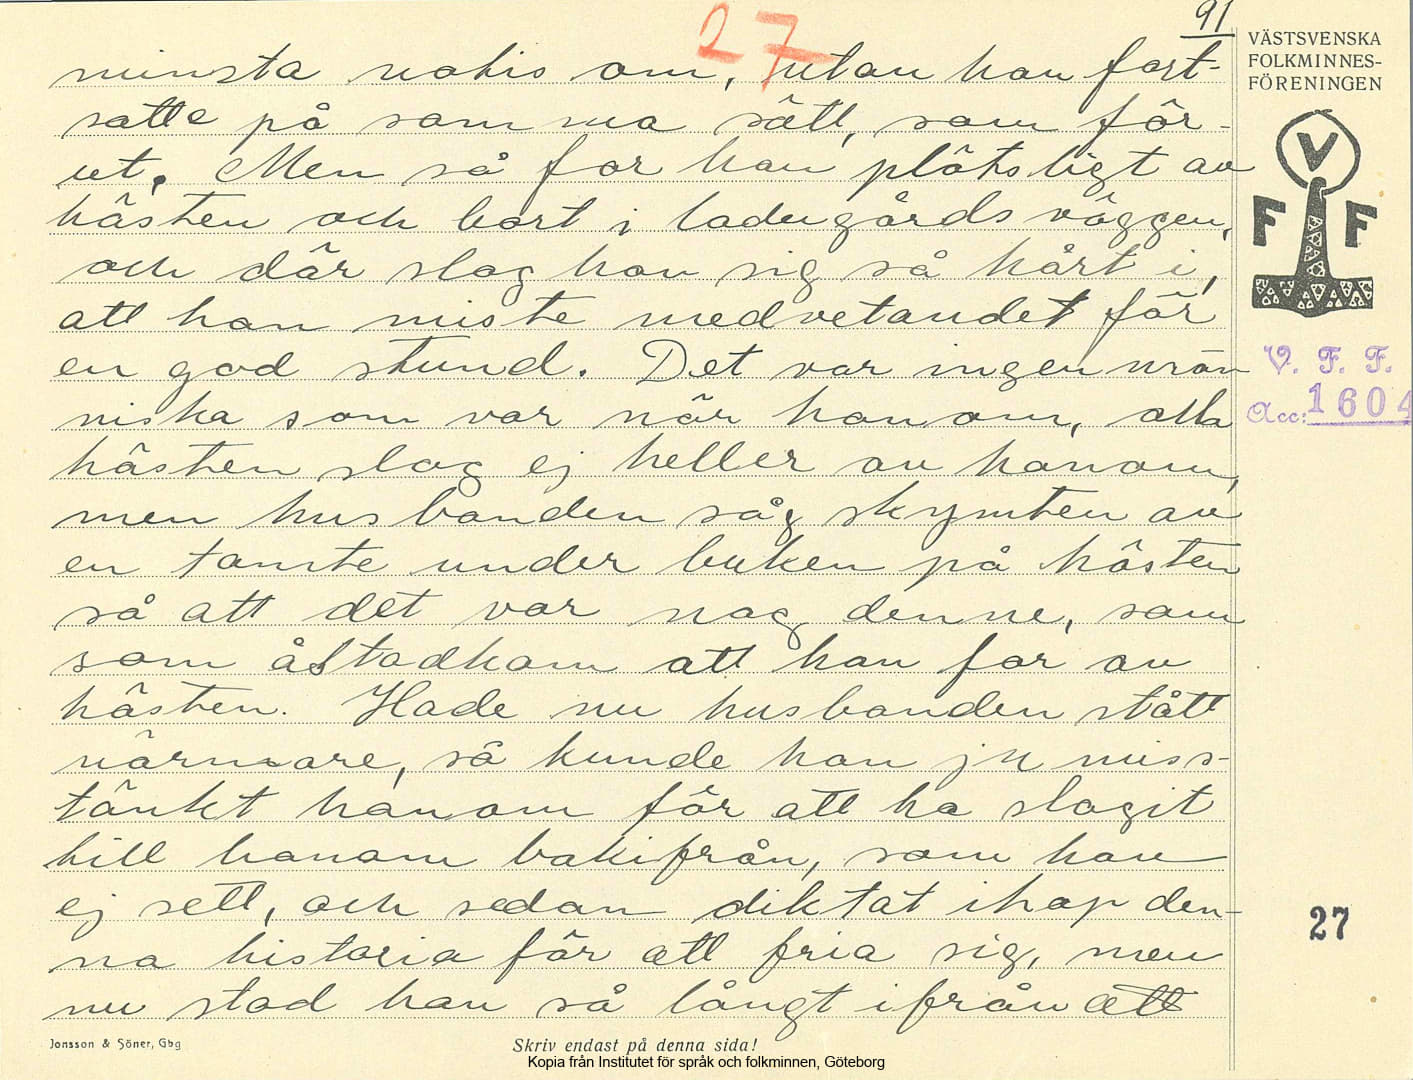 91
27
minsta notis om, utan han fort-
satte på samma sätt, som för-
ut. Men så for han plötsligt av
hästen och bort i ladugårdsväggen,
och där slog han sig så hårt i,
att han miste medvetandet för
en god stund. Det var ingen män
niska som var när honom, alla
hästen slog ej heller av honom,
men husbonden såg skymten av
en tomte under buken på hästen
så att det var nog denne, som
som åstadkom att han for av
hästen. Hade nu husbonden stått
närmare, så kunde han ju miss-
tänkt honom för att ha slagit
till honom bakifrån, som han
ej sett, och sedan diktat ihop den-
na historia för att fria sig, men
nu stod han så långt ifrån att
VÄSTSVENSKA
FOLKMINNES-
FÖRENINGEN
V
F F
V. F. F.
Acc: 1604
27
Jonsson & Söner, Gbg
Skriv endast på denna sida!
Kopia från Institutet för språk och folkminnen, Göteborg